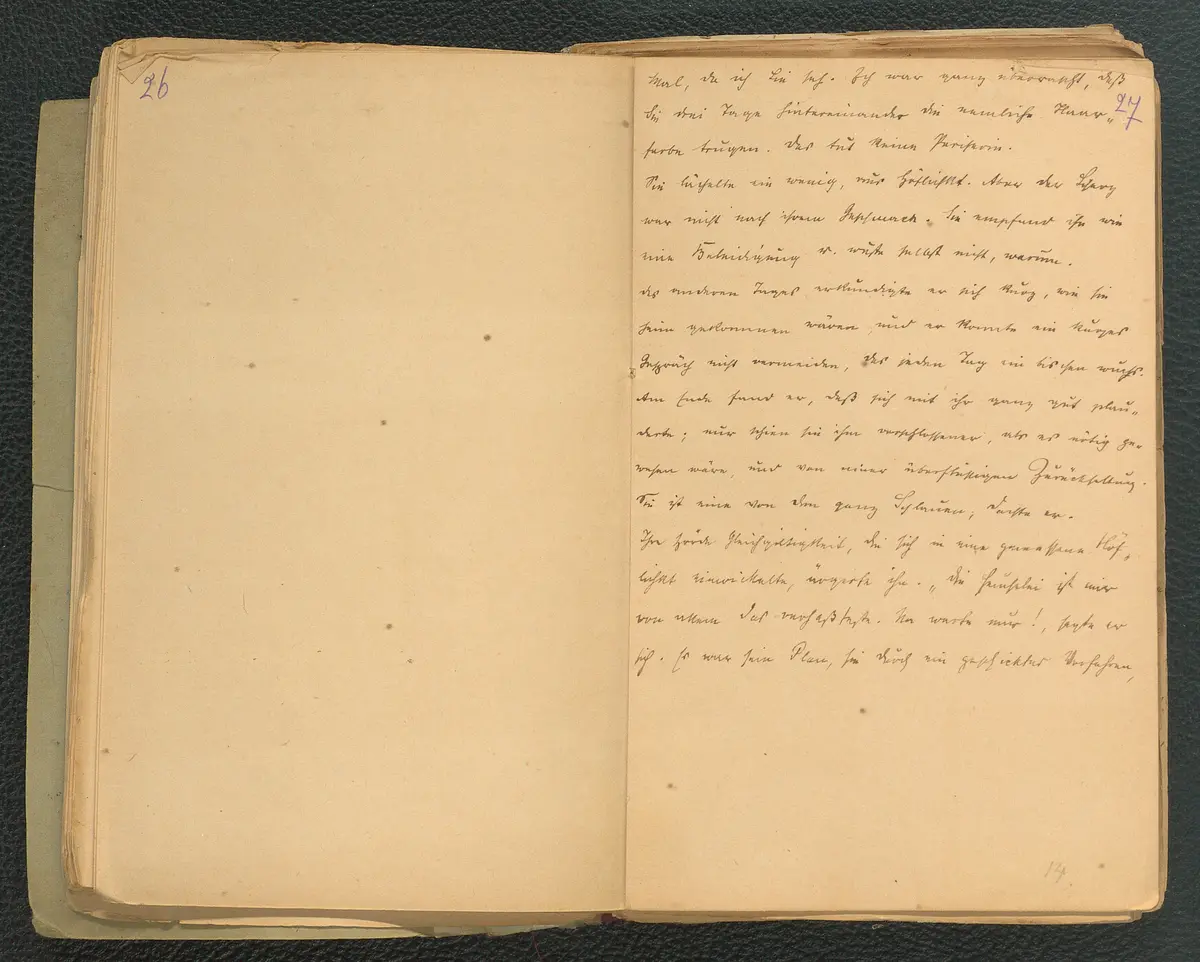 26
27
Mal, da ich Sie sah. Ich war ganz überrascht, daß
Sie drei Tage hintereinander die nemliche Haar„
farbe trugen. Das tut keine Pariserin.
Sie lächelte ein wenig, aus Höflichkt. Aber der Scherz
war nicht nach ihrem Geschmack. Sie empfand ihn wie
eine Beleidigung u. wußte selbst nicht, warum.
des anderen Tages erkundigte er sich kurz, wie sie
heim gekommen wären und er konnte ein kurzes
Gespräch nicht vermeiden, das jeden Tag ein bischen wuchs.
Am Ende fand er, daß sich mit ihr ganz gut plau„
derte; nur schien sie ihm verschlossener, als es nötig ge„
wesen wäre, und von einer überflüssigen Zurückhaltung.
Sie ist eine von den ganz Schlauen, dachte er.
Ihre spröde Gleichgiltigkeit, die sich in eine gemessene Höf„
lichkt einwickelte, ärgerte ihn. „Die Heuchelei ist mir
von allem das verhaßteste. Na warte nur!, sagte er
sich. Es war sein Plan, sie durch ein geschicktes Verfahren,
14